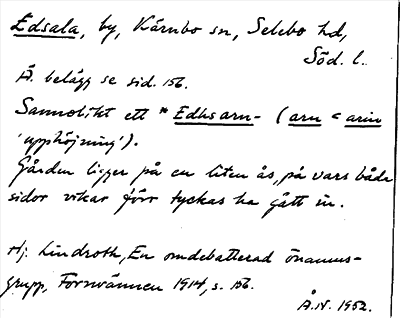 Edsala, by, Kärnbo sn, Selebo hd,
Söd. l.
Ä. belägg se sid. 156.
Sannolikt ett * Edhsarn- (arn < arin
'upphöjning').
Gården ligger på en liten ås, på vars båda
sidor vikar förr tyckas ha gått in.
Hj. Lindroth, En omdebatterad önamns-
grupp, Fornvännen 1914, s. 156.
Å.N. 1952.